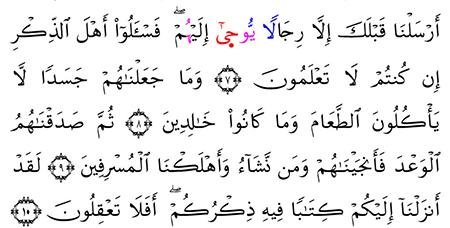 أَرْسَلْنَا قَبْلَكَ إِلَّا رِجَالًا يُّوحَىٰٓ إِلَيْهُمْۖ فَسْـَٔلُوٓاْ أَهْلَ ٱلذِّكْرِ
إِن كُنتُمْ لَا تَعْلَمُونَ ۝٧ وَمَا جَعَلْنَٰهُمْ جَسَدًا لَّا
يَأْكُلُونَ ٱلطَّعَامَ وَمَا كَانُواْ خَٰلِدِينَ ۝٨ ثُمَّ صَدَقْنَٰهُمُ
ٱلْوَعْدَ فَأَنجَيْنَٰهُمْ وَمَن نَّشَآءُ وَأَهْلَكْنَا ٱلْمُسْرِفِينَ ۝٩ لَقَدْ
أَنزَلْنَآ إِلَيْكُمْ كِتَٰبًا فِيهِ ذِكْرُكُمْۖ أَفَلَا تَعْقِلُونَ ۝١٠